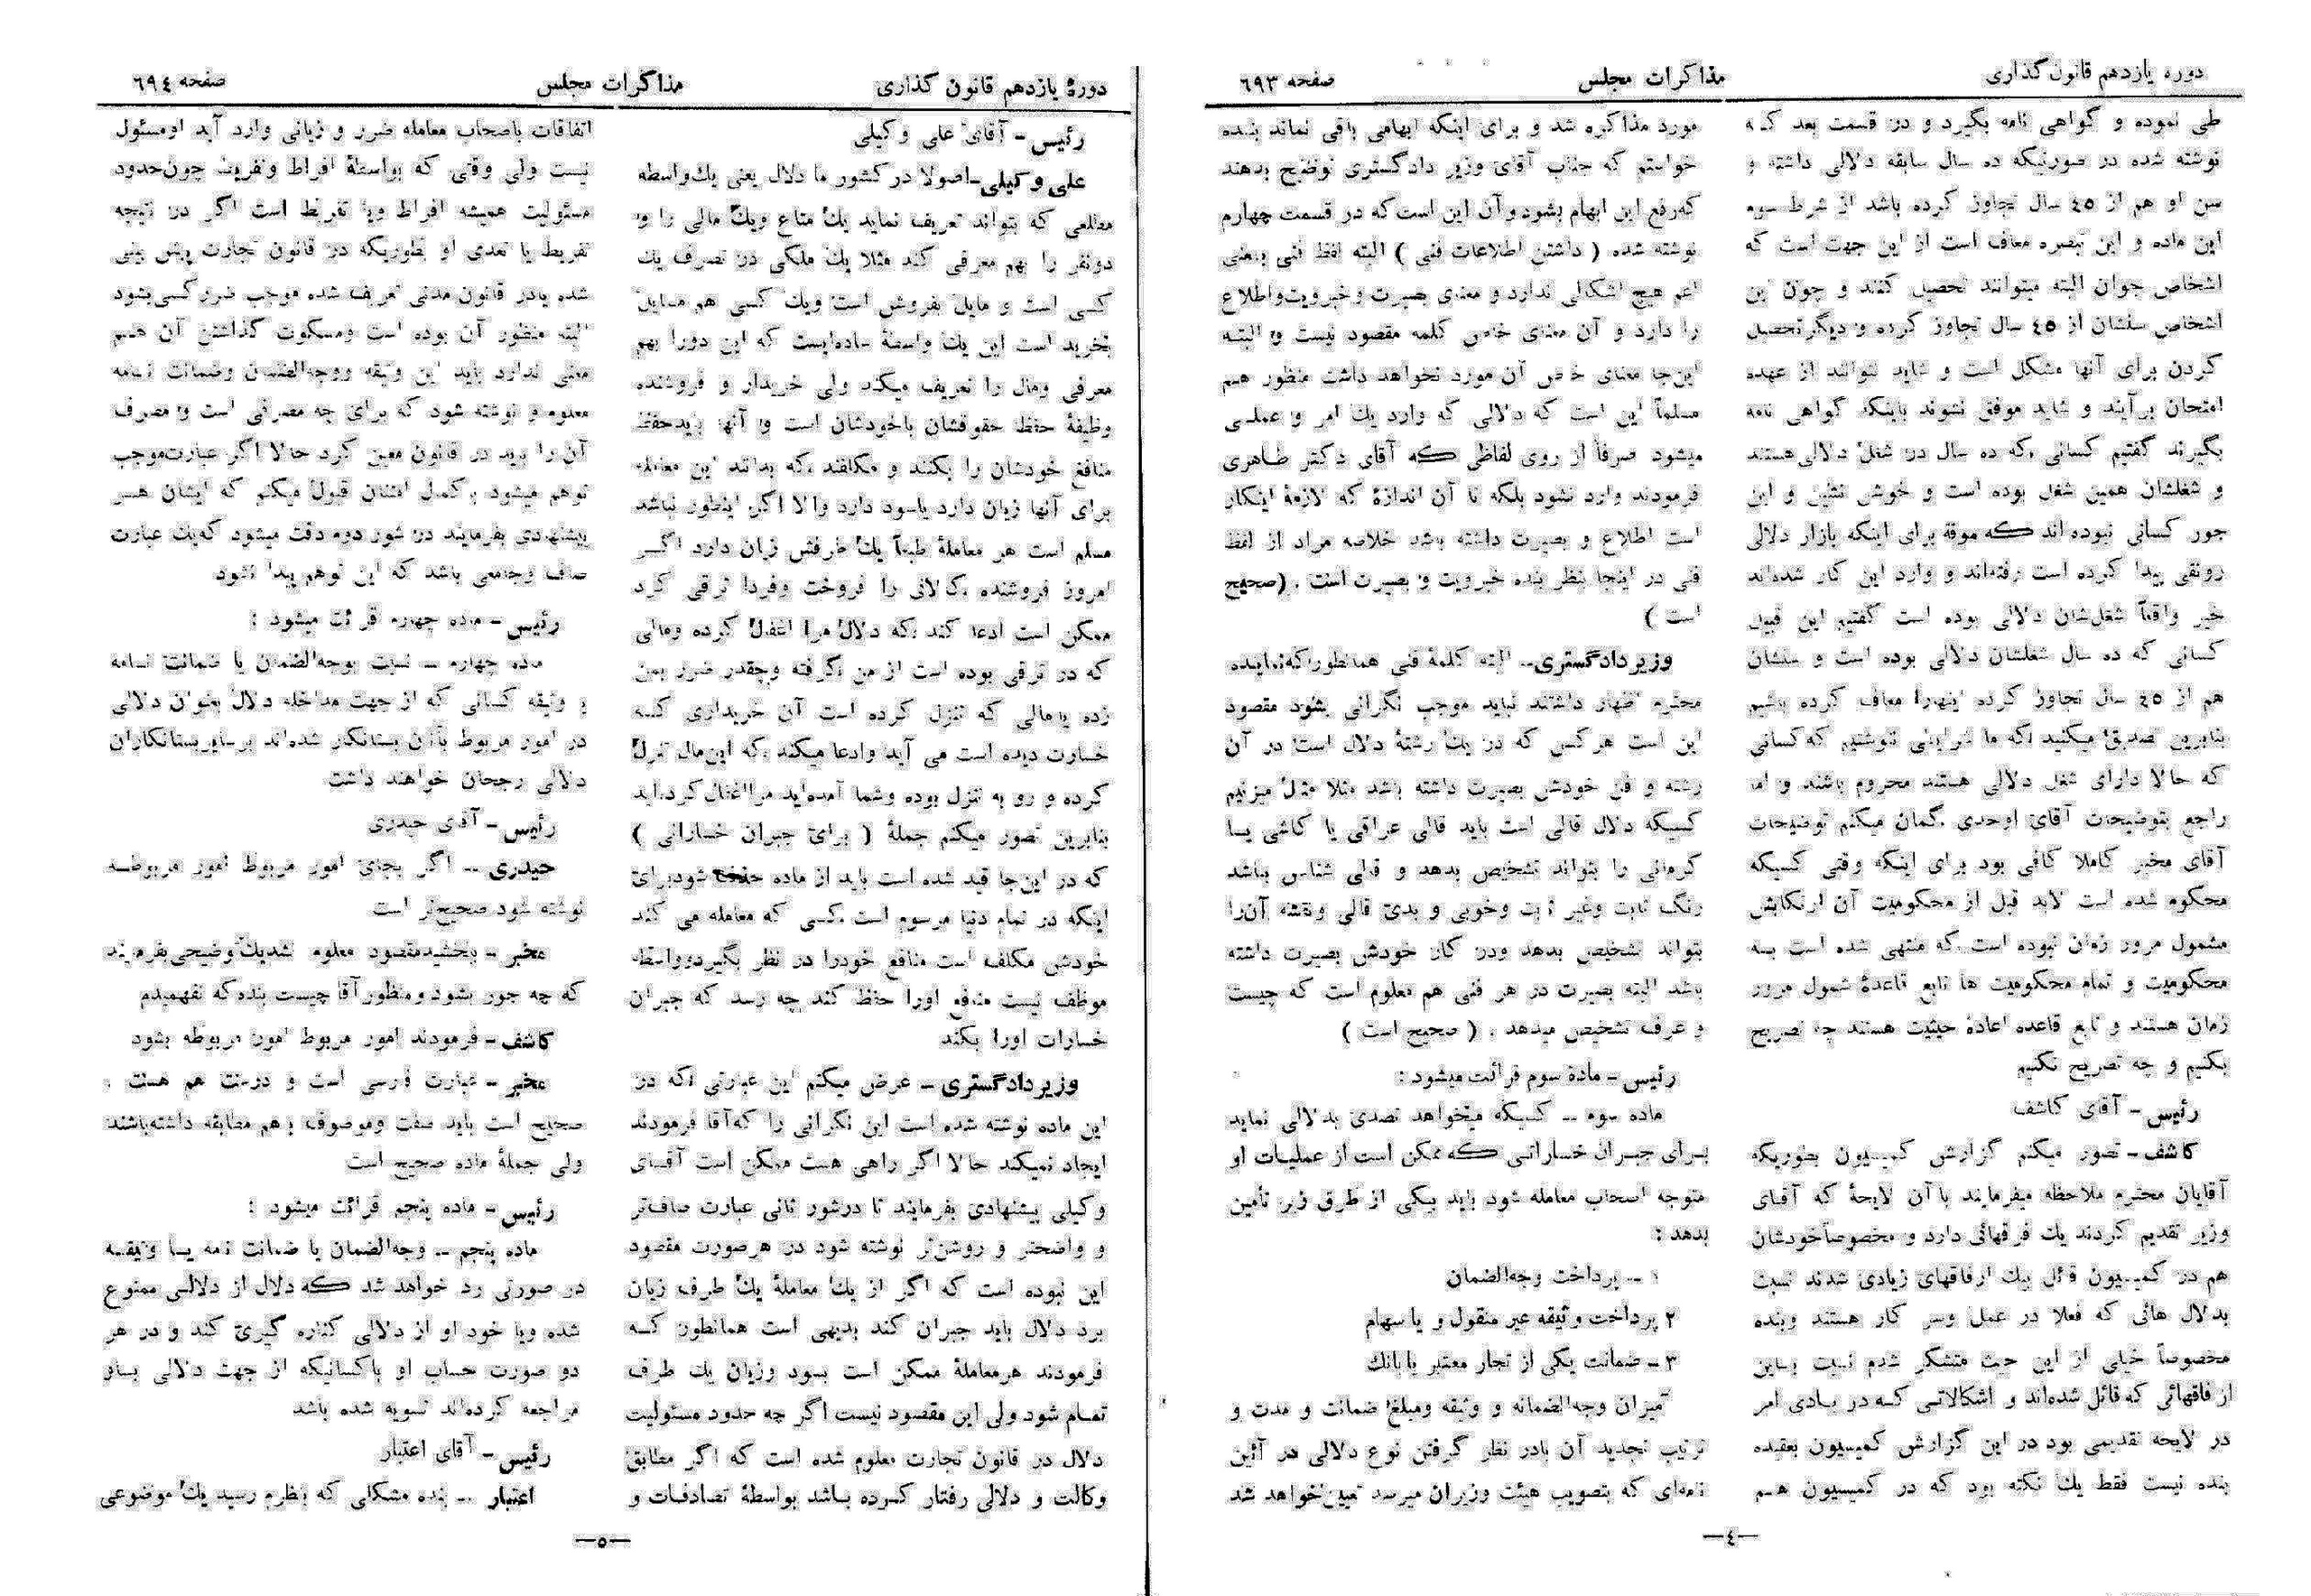 دوره یازدهم قانون‌گذاری
مذاکرات مجلس
صفحه ٦٩٣
طی نموده و گواهی نامه بگیرد و در قسمت بعد که
نوشته شده در صورتیکه ده سال سابقه دلالی داشته و
سن او هم از ٤٥ سال تجاوز کرده باشد از شرط سوم
این ماده و این تبصره معاف است از این جهت است که
اشخاص جوان البته میتوانند تحصیل کنند و چون این
اشخاص سنشان از ٤٥ سال تجاوز کرده و دیگر تحصیل
کردن برای آنها مشکل است و شاید نتوانند از عهده
امتحان برآیند و شاید موفق نشوند باینکه گواهی نامه
بگیرند گفتیم کسانی که ده سال در شغل دلالی هستند
و شغلشان همین شغل بوده است و خوش نشین و این
جور کسانی نبوده اند که موقة برای اینکه بازار دلالی
رونقی پیدا کرده است رفته‌اند و وارد این کار شده‌اند
خیر واقعاً شغل‌شان دلالی بوده است گفتیم این قبیل
کسانی که ده سال شغلشان دلالی بوده است و سنشان
هم از ٤٥ سال تجاوز کرده اینهارا معاف کرده باشیم
بنابرین تصدیق میکنید که ما شرایطی نوشتیم که کسانی
که حالا دارای شغل دلالی هستند محروم باشند و اما
راجع بتوضیحات آقای اوحدی گمان میکنم توضیحات
آقای مخبر کاملا کافی بود برای اینکه وقتی کسیکه
محکوم شده است لابد قبل از محکومیت آن ارتکابش
مشمول مرور زمان نبوده است که منتهی شده است به
محکومیت و تمام محکومیت ها تابع قاعدهٔ شمول مرور
زمان هستند و تابع قاعده اعادهٔ حیثیت هستند چه تصریح
بکنیم و چه تصریح نکنیم
رئیس - آقای کاشف
کاشف - تصور میکنم گزارش کمیسیون بطوریکه
آقایان محترم ملاحظه میفرمایند با آن لایحهٔ که آقای
وزیر تقدیم کردند یك فرقهائی دارد و مخصوصاً خودشان
هم در کمیسیون قائل بیك ارفاقهای زیادی شدند نسبت
بدلال هائی که فعلا در عمل وسر کار هستند وبنده
مخصوصاً خیلی از این حیث متشکر شدم نسبت باین
ارفاقهائی که قائل شده‌اند و اشکالاتی که در بادی امر
در لایحه تقدیمی بود در این گزارش کمیسیون بعقیده
بنده نیست فقط یك نکته بود که در کمیسیون هم
مورد مذاکره شد و برای اینکه ابهامی باقی نماند بنده
خواستم که جناب آقای وزیر دادگستری توضیح بدهند
که رفع این ابهام بشود و آن این است که در قسمت چهارم
نوشته شده ( داشتن اطلاعات فنی ) البته لفظ فنی بمعنی
اعم هیچ اشکالی ندارد و معنی بصیرت و خبرویت واطلاع
را دارد و آن معنای خاص کلمه مقصود نیست و البته
این‌جا معنای خاص آن مورد نخواهد داشت منظور هم
مسلماً این است که دلالی که وارد یك امر و عملی
میشود صرفاً از روی لفاظی که آقای دکتر طاهری
فرمودند وارد نشود بلکه تا آن اندازهٔ که لازمهٔ اینکار
است اطلاع و بصیرت داشته باشد خلاصه مراد از لفظ
فنی در اینجا بنظر بنده خبرویت و بصیرت است . (صحیح
است )
وزیر دادگستری- البته کلمهٔ فنی همانطور که نماینده
محترم اظهار داشتند نباید موجب نگرانی بشود مقصود
این است هر کس که در یك رشتهٔ دلال است در آن
رشته و فن خودش بصیرت داشته باشد مثلا مثل میزنیم
کسیکه دلال قالی است باید قالی عراقی یا کاشی یا
کرمانی را بتواند تشخیص بدهد و قالی شناس باشد
رنگ ثابت وغیر ثابت وخوبی و بدی قالی ونقشه آنرا
بتواند تشخیص بدهد ودر کار خودش بصیرت داشته
باشد البته بصیرت در هر فنی هم معلوم است که چیست
و عرف تشخیص میدهد . ( صحیح است )
رئیس - مادهٔ سوم قرائت میشود :
ماده سوم - کسیکه میخواهد تصدی بدلالی نماید
برای جبران خساراتی که ممکن است از عملیات او
متوجه اصحاب معامله شود باید بیکی از طرق زیر تأمین
بدهد :
١ - پرداخت وجه‌الضمان
٢ پرداخت وثیقه غیر منقول و یا سهام
٣ - ضمانت یکی از تجار معتبر یا بانك
میزان وجه‌الضمانه و وثیقه ومبلغ ضمانت و مدت و
ترتیب تجدید آن بادر نظر گرفتن نوع دلالی در آئین
نامه‌ای که بتصویب هیئت وزیران میرسد تعیین خواهد شد
—٤—
دورهٔ یازدهم قانون گذاری
مذاکرات مجلس
صفحه ٦٩٤
رئیس - آقای علی وکیلی
علی وکیلی-اصولا در کشور ما دلال یعنی یك واسطه
مطلعی که بتواند تعریف نماید یك متاع ویك مالی را و
دونفر را بهم معرفی کند مثلا یك ملکی در تصرف یك
کسی است و مایل بفروش است ویك کسی هم مایل
بخرید است این یك واسطهٔ ساده‌ایست که این دورا بهم
معرفی ومال را تعریف میکند ولی خریدار و فروشنده
وظیفهٔ حفظ حقوقشان باخودشان است و آنها باید حفظ
منافع خودشان را بکنند و مکلفند که بدانند این معامله
برای آنها زیان دارد یاسود دارد والا اگر اینطور نباشد
مسلم است هر معاملهٔ طبعاً یك طرفش زیان دارد اگر
امروز فروشنده کالائی را فروخت وفردا ترقی کرد
ممکن است ادعا کند که دلال مرا اغفال کرده ومالی
که در ترقی بوده است از من گرفته وچقدر ضرر بمن
زده یا مالی که تنزل کرده است آن خریداری که
خسارت دیده است می آید وادعا میکند که این مال تنزل
کرده و رو به تنزل بوده وشما آمده‌اید مرا اغفال کرده‌اید
بنابرین تصور میکنم جملهٔ ( برای جبران خساراتی )
که در این‌جا قید شده است باید از ماده حذف شود برای
اینکه در تمام دنیا مرسوم است کسی که معامله می کند
خودش مکلف است منافع خودرا در نظر بگیرد وواسطه
موظف نیست منافع اورا حفظ کند چه رسد که جبران
خسارات اورا بکند
وزیر دادگستری - عرض میکنم این عبارتی که در
این ماده نوشته شده است این نگرانی را که آقا فرمودند
ایجاد نمیکند حالا اگر راهی هست ممکن است آقای
وکیلی پیشنهادی بفرمایند تا درشور ثانی عبارت صاف‌تر
و واضحتر و روشن‌تر نوشته شود در هر صورت مقصود
این نبوده است که اگر از یك معاملهٔ یك طرف زیان
برد دلال باید جبران کند بدیهی است همانطور که
فرمودند هر معاملهٔ ممکن است بسود وزیان یك طرف
تمام شود ولی این مقصود نیست اگر چه حدود مسئولیت
دلال در قانون تجارت معلوم شده است که اگر مطابق
وکالت و دلالی رفتار کرده باشد بواسطهٔ تصادفات و
اتفاقات باصحاب معامله ضرر و زیانی وارد آید او مسئول
نیست ولی وقتی که بواسطهٔ افراط وتفریط چون حدود
مسئولیت همیشه افراط ویا تفریط است اگر در نتیجه
تفریط یا تعدی او بطوریکه در قانون تجارت پیش بینی
شده یادر قانون مدنی تعریف شده موجب ضرر کسی بشود
البته منظور آن بوده است ومسکوت گذاشتن آن هم
معنی ندارد باید این وثیقه ووجه‌الضمان وضمانت نامه
معلوم و نوشته شود که برای چه مصرفی است و مصرف
آن را باید در قانون معین کرد حالا اگر عبارت موجب
توهم میشود بکمال امتنان قبول میکنم که ایشان هر
پیشنهادی بفرمایند در شور دوم دقت میشود که یك عبارت
صاف وجامعی باشد که این توهم پیدا نشود
رئیس - ماده چهارم قرائت میشود :
ماده چهارم - نسبت بوجه‌الضمان یا ضمانت نامه
و وثیقه کسانی که از جهت مداخله دلال بعنوان دلالی
در امور مربوط بآن بستانکار شده‌اند بر سایر بستانکاران
دلالی رجحان خواهند داشت
رئیس - آقای حیدری
حیدری - اگر بجای امور مربوط امور مربوطه
نوشته شود صحیح‌تر است
مخبر - ببخشید مقصود معلوم نشد یك توضیحی بفرمایند
که چه جور بشود و منظور آقا چیست بنده که نفهمیدم
کاشف - فرمودند امور مربوط امور مربوطه بشود
مخبر - عبارت فارسی است و درست هم هست .
صحیح است باید صفت وموصوف باهم مطابقه داشته باشند
ولی جملهٔ ماده صحیح است
رئیس - ماده پنجم قرائت میشود :
ماده پنجم - وجه‌الضمان یا ضمانت نامه یا وثیقه
در صورتی رد خواهد شد که دلال از دلالی ممنوع
شده ویا خود او از دلالی کناره گیری کند و در هر
دو صورت حساب او باکسانیکه از جهت دلالی باو
مراجعه کرده‌اند تسویه شده باشد
رئیس - آقای اعتبار
اعتبار - بنده مشکلی که بنظرم رسید یك موضوعی
—٥—